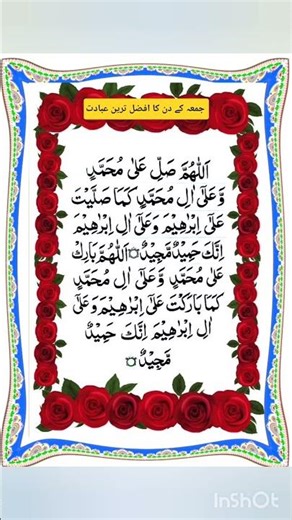 جمعہ کے دن کا افضل ترین عبادت
اَللّٰهُمَّ صَلِّ عَلٰى مُحَمَّدٍ
وَّ عَلٰٓى اٰلِ مُحَمَّدٍ كَمَا صَلَّيْتَ
عَلٰٓى اِبْرٰهِيْمَ وَ عَلٰٓى اٰلِ اِبْرٰهِيْمَ
اِنَّكَ حَمِيْدٌ مَّجِيْدٌ ۝ اَللّٰهُمَّ بَارِكْ
عَلٰى مُحَمَّدٍ وَّ عَلٰٓى اٰلِ مُحَمَّدٍ
كَمَا بَارَكْتَ عَلٰٓى اِبْرٰهِيْمَ وَ عَلٰٓى
اٰلِ اِبْرٰهِيْمَ اِنَّكَ حَمِيْدٌ
مَّجِيْدٌ ۝
InShOt